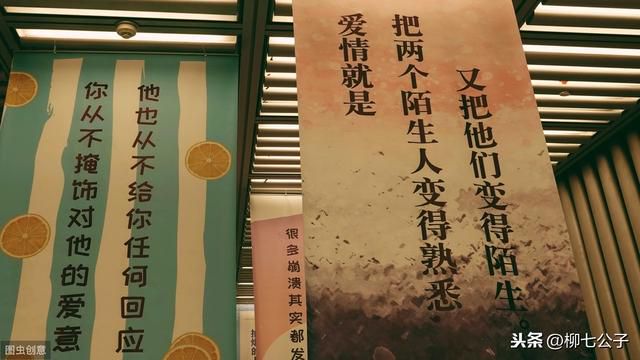 你从不掩饰对他的爱意
他也从不给你任何回应
很多崩溃其实都发
爱情就是
把两个陌生人变得熟悉
又把他们变得陌生。
图虫创意
头条 @柳七公子